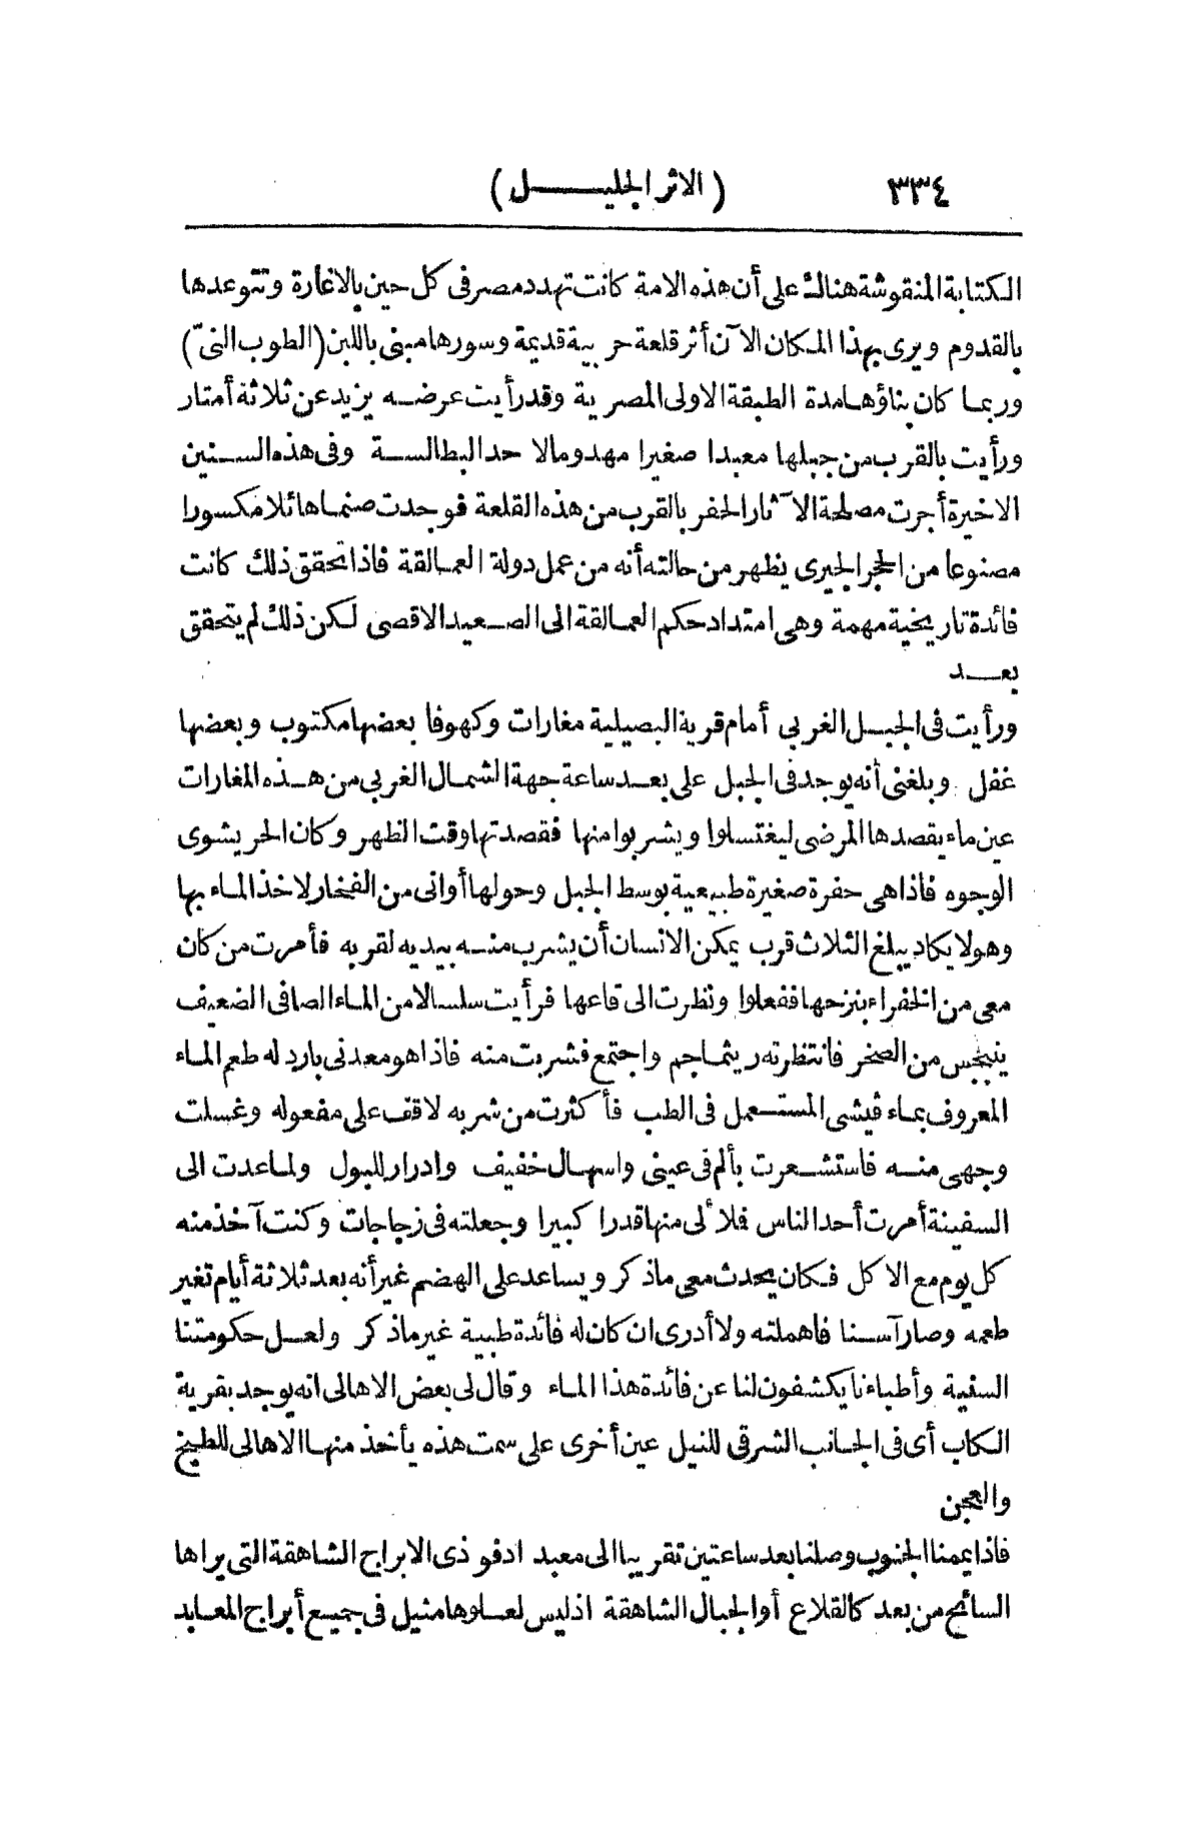 ٣٣٤
(الاثر الجليـــل)
الكتابة المنقوشة هناك على أن هذه الامة كانت تهدد مصر فى كل حين بالاغارة وتتوعدها
بالقدوم ويرى بهذا المكان الآن أثر قلعة حربية قديمة وسورها مبنى باللبن (الطوب النىّ)
وربما كان بناؤها مدة الطبقة الاولى المصرية وقد رأيت عرضه يزيد عن ثلاثة أمتار
ورأيت بالقرب من جبلها معبدا صغيرا مهدوما لاحد البطالسة وفى هذه السنين
الاخيرة أجرت مصلحة الآثار الحفر بالقرب من هذه القلعة فوجدت صنما هائلا مكسورا
مصنوعا من الحجر الجيرى يظهر من حالته أنه من عمل دولة العمالقة فاذا تحقق ذلك كانت
فائدة تاريخية مهمة وهى امتداد حكم العمالقة الى الصعيد الاقصى لكن ذلك لم يتحقق
بعد
ورأيت فى الجبل الغربى أمام قرية البصيلية مغارات وكهوفا بعضها مكتوب وبعضها
غفل وبلغنى أنه يوجد فى الجبل على بعد ساعة جهة الشمال الغربى من هذه المغارات
عين ماء يقصدها المرضى ليغتسلوا ويشربوا منها فقصدتها وقت الظهر وكان الحر يشوى
الوجوه فاذا هى حفرة صغيرة طبيعية بوسط الجبل وحولها أوانى من الفخار لاخذ الماء بها
وهو لا يكاد يبلغ الثلاث قرب يمكن الانسان أن يشرب منه بيديه لقربه فأمرت من كان
معى من الخفراء بنزحها ففعلوا ونظرت الى قاعها فرأيت سلسالا من الماء الصافى الضعيف
ينبجس من الصخر فانتظرته ريثما جم واجتمع فشربت منه فاذا هو معدنى بارد له طعم الماء
المعروف بماء ڤيشى المستعمل فى الطب فأكثرت من شربه لاقف على مفعوله وغسلت
وجهى منه فاستشعرت بألم فى عينى واسهال خفيف وادرار للبول ولما عدت الى
السفينة أمرت أحد الناس فملأ لى منها قدرا كبيرا وجعلته فى زجاجات وكنت آخذ منه
كل يوم مع الاكل فكان يحدث معى ما ذكر ويساعد على الهضم غير أنه بعد ثلاثة أيام تغير
طعمه وصار آسنا فاهملته ولا أدرى ان كان له فائدة طبية غير ما ذكر ولعل حكومتنا
السنية وأطباءنا يكشفون لنا عن فائدة هذا الماء وقال لى بعض الاهالى انه يوجد بقرية
الكاب أى فى الجانب الشرقى للنيل عين أخرى على سمت هذه يأخذ منها الاهالى للطبيخ
والعجن
فاذا يممنا الجنوب وصلنا بعد ساعتين تقريبا الى معبد ادفو ذى الابراج الشاهقة التى يراها
السائح من بعد كالقلاع أو الجبال الشاهقة اذ ليس لعلوها مثيل فى جميع أبراج المعابد